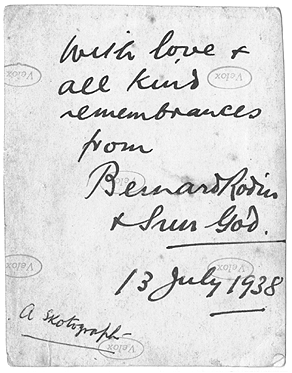 With love &
all kind
remembrances
from
Bernard Rodin
& Sun God.
13 July 1938
A Skotograph
Velox
Velox
Velox
Velox
Velox
Velox